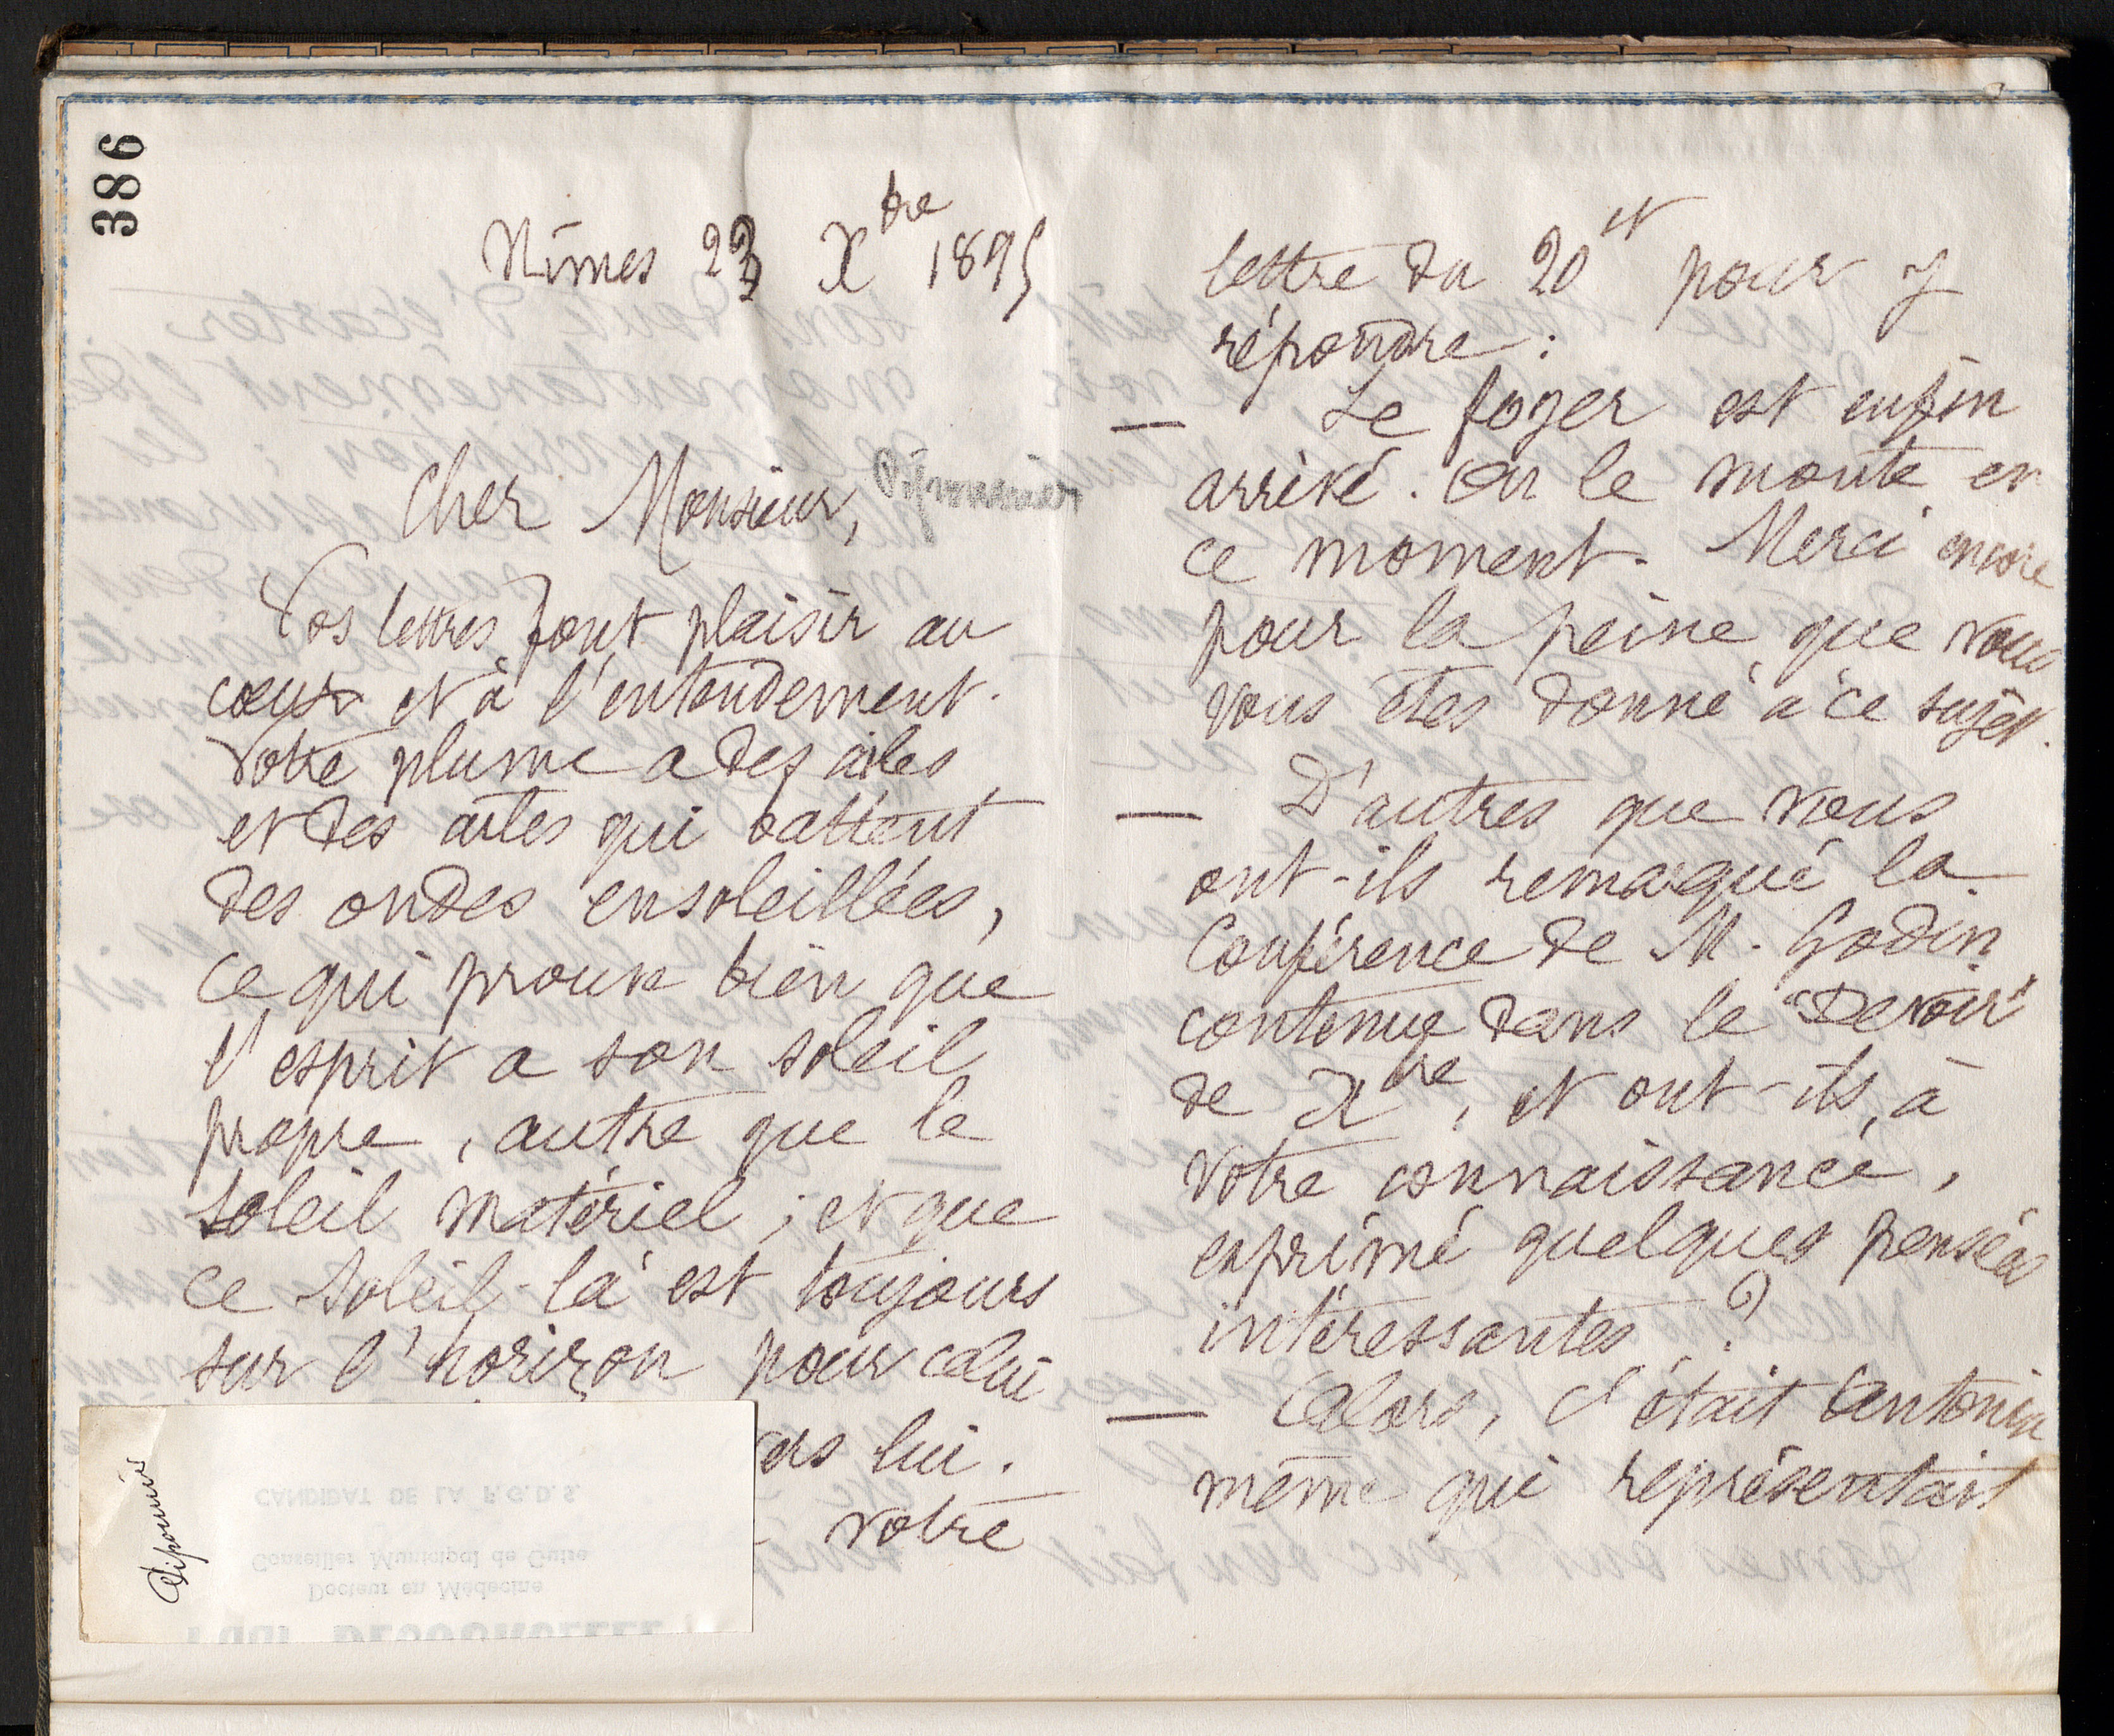 386
Nîmes 23 Xbre 1895
Cher Monsieur,
Vos lettres font plaisir au
cœur et à l'entendement.
Votre plume a des ailes
et des ailes qui battent
des ondes ensoleillées,
ce qui prouve bien que
l'esprit a son soleil
propre, autre que le
soleil matériel ; et que
ce soleil-là est toujours
sur l'horizon pour celui
lui.
votre
lettre du 20 ct pour y
répondre :
— Le foyer est enfin
arrivé. On le monte en
ce moment. Merci encore
pour la peine que vous
vous êtes donné à ce sujet.
— D'autres que vous
ont-ils remarqué la
Conférence de M. Godin
contenue dans le "Devoir"
de Xbre, et ont-ils, à
votre connaissance,
exprimé quelques pensées
intéressantes ?
— Alors, c'était Antonin
même qui représentait
CANDIDAT DE LA F.G.D.S.
Conseiller Municipal de Guise
Docteur en Médecine